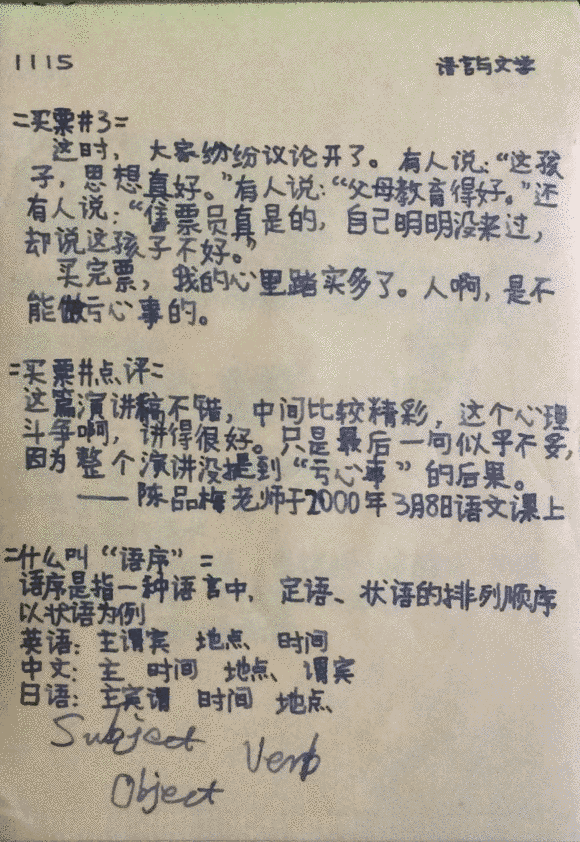 1115
语言与文学
=买票#3=
这时，大家纷纷议论开了。有人说：“这孩
子，思想真好。”有人说：“父母教育得好。”还
有人说：“售票员真是的，自己明明没来过，
却说这孩子不好。”
买完票，我的心里踏实多了。人啊，是不
能做亏心事的。
=买票#点评=
这篇演讲稿不错，中间比较精彩，这个心理
斗争啊，讲得很好。只是最后一句似乎不妥，
因为整个演讲没提到“亏心事”的后果。
——陈品梅老师于2000年3月8日语文课上
=什么叫“语序”=
语序是指一种语言中，定语、状语的排列顺序
以状语为例
英语：主谓宾 地点 时间
中文：主 时间 地点 谓宾
日语：主宾谓 时间 地点
Subject
Verb
Object